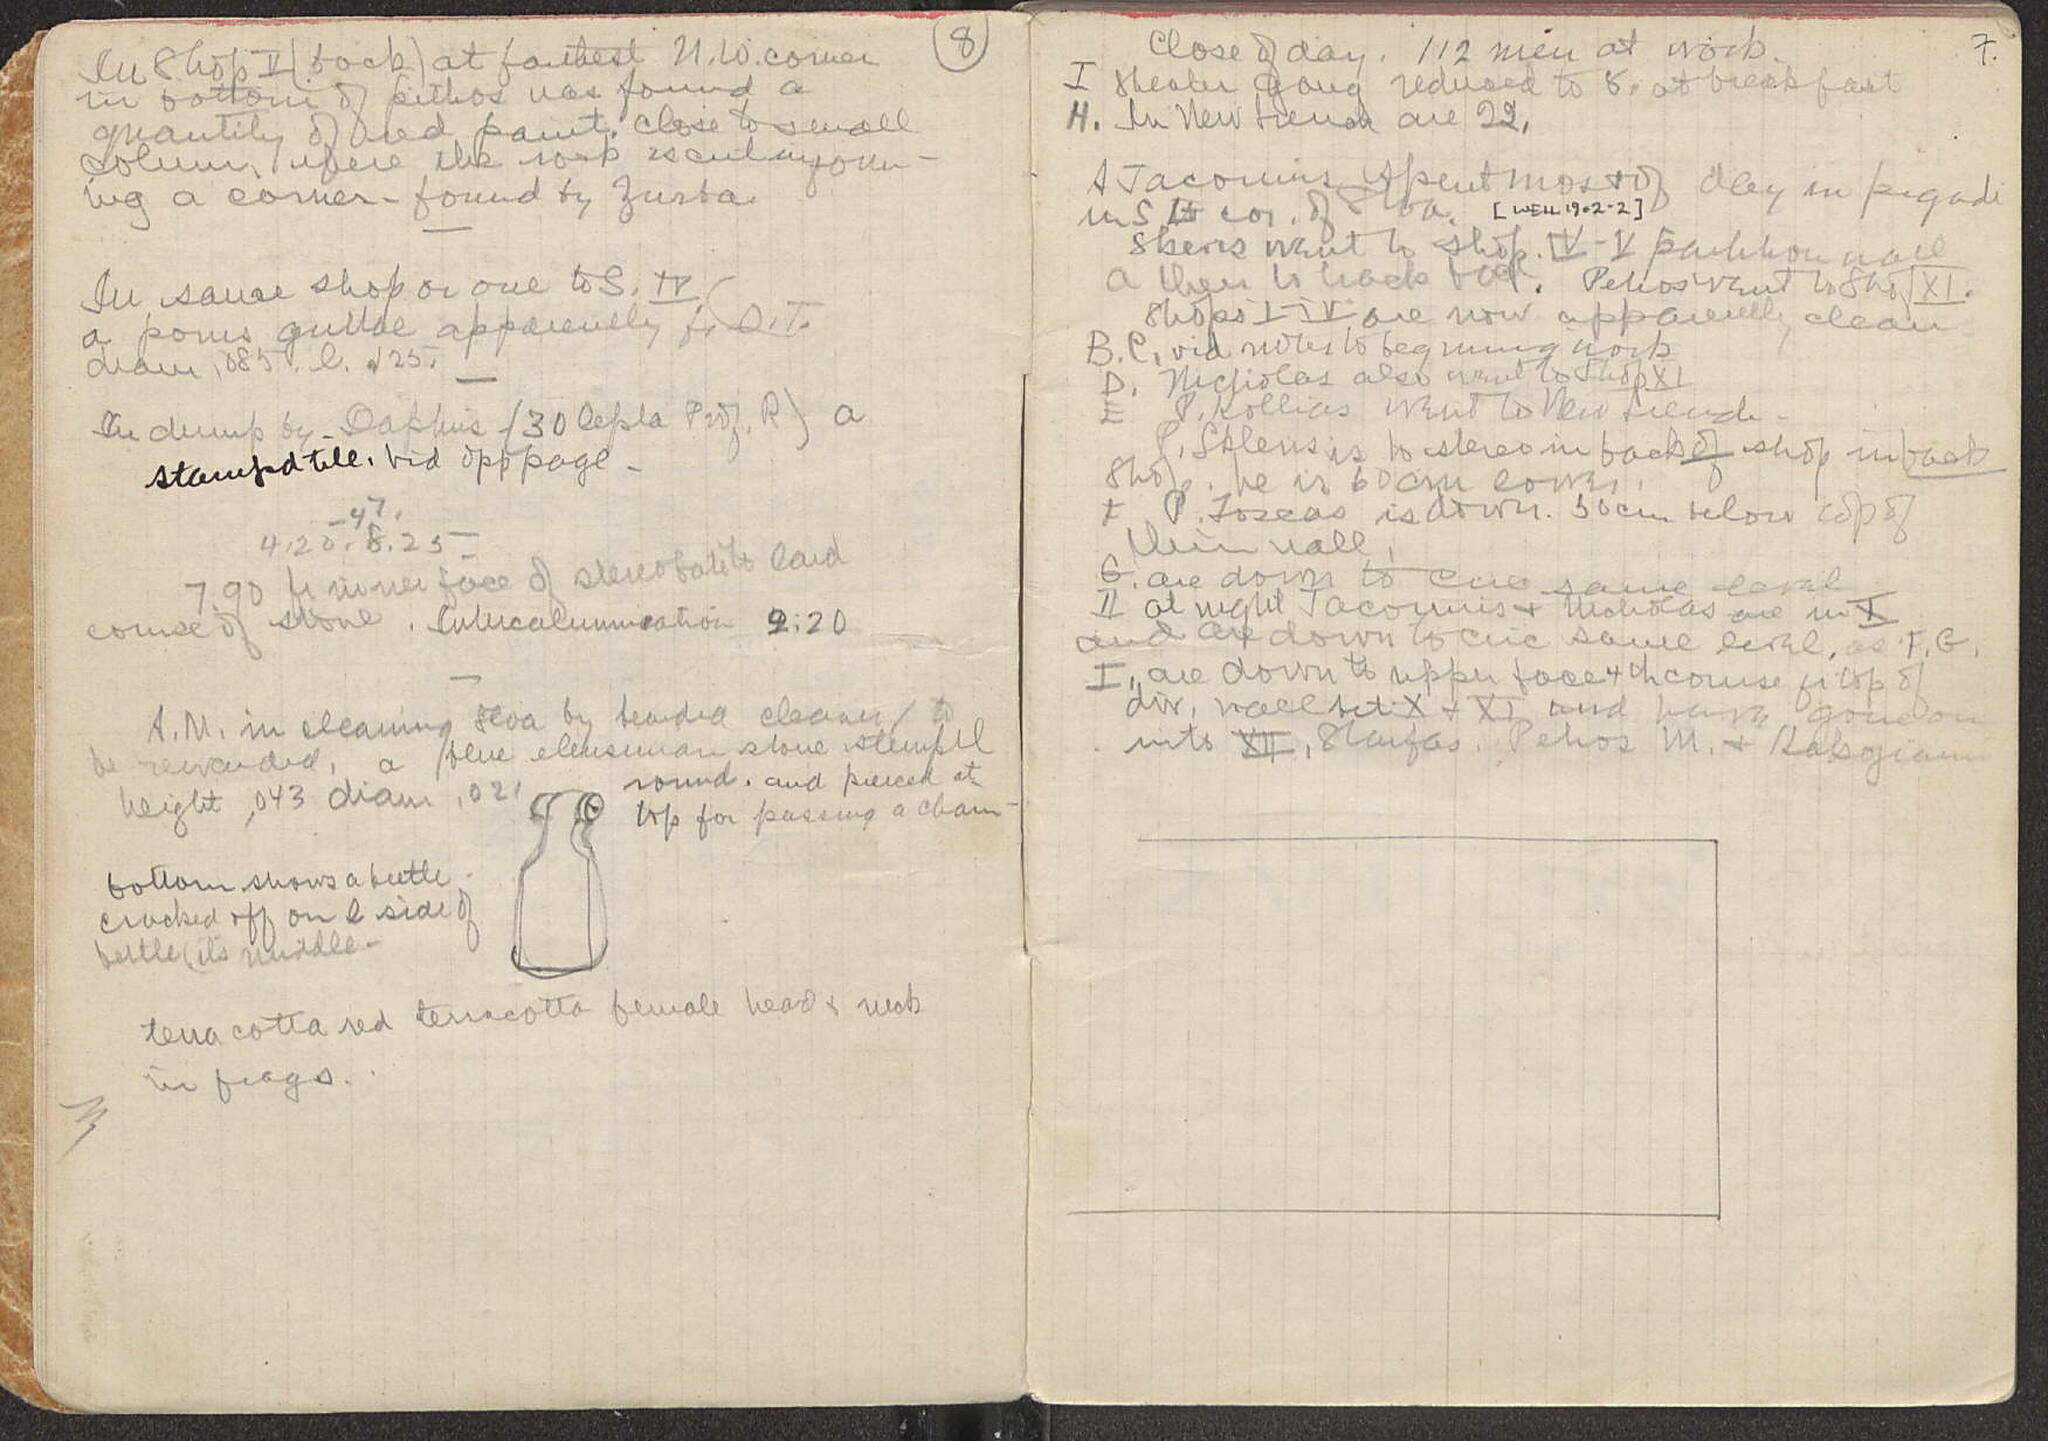 8
In Shop V (back) at farthest N.W. corner
in bottom of pithos was found a
quantity of red paint. close to small
column, where the rock is cut in form-
ing a corner - found by Zurba.
In same shop or one to S. IV
a poros guttae apparently fr. O.T.
diam. .085. l. .125.
In dump by Daphnis (30 lepta Prof. R) a
stamped tile. vid opp page -
-47.
4.20. 8.25
7.90 fr inner face of stereobate to land
course of stone. Intercolumniation 2.20
A.M. in cleaning Stoa by bearded cleaner, to
be rewarded, a blue eleusinian stone stempel
height .043 diam .021 round. and pierced at
top for passing a chain -
bottom shows a beetle -
cracked off on l side of
beetle (its middle -
terra cotta red terracotta female head & neck
in frags.
7.
Close of day. 112 men at work.
I Theater gang reduced to 8. at breakfast
H. In New trench are 22.
A Jacomis spent most of day in pegadi
in S cor. of Stoa. [WELL 1902-2]
went to shop. IV-V partition wall
a then to back wall. Petros went to Shop XI.
Shops I-IV are now apparently clean
B.C. vid notes to beginning work
D. Nicholas also went to Shop XI
E P. Kollias went to New trench -
P. is to stereo in back of shop in back
Shop. he is 60 cm lower.
F P. is down. 50 cm below top of
thin wall.
G. are down to circ same level
II at night Jacomis & Nicholas are in X
and are down to circ same level, as F. G.
I, are down to upper face 4th course fr top of
div. wall bet X & XI and have gone on
into XII, Petros M. &